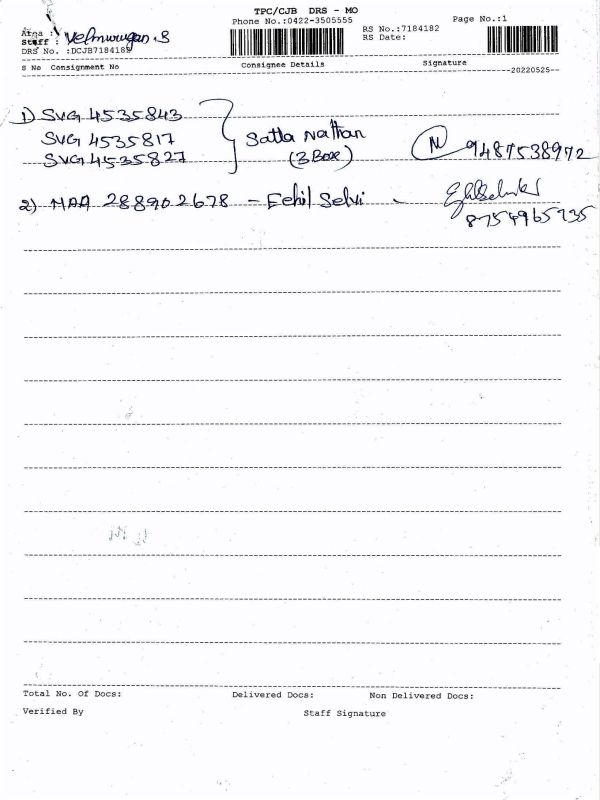 TPC/CJB DRS - MO
Phone No.:0422-3505555
Page No.:1
RS No.:7184182
RS Date:
Area :
Staff : Velmurugan.S
DRS No. :DCJB7184182
S No Consignment No Consignee Details Signature
20220525
1) SVG 4535843
SVG 4535817
SVG 4535827
Satla Nathan
(3 Box)
N 9487538972
2) MAA 288902678 - Eehil Selvi
8754965735
Total No. Of Docs: Delivered Docs: Non Delivered Docs:
Verified By Staff Signature